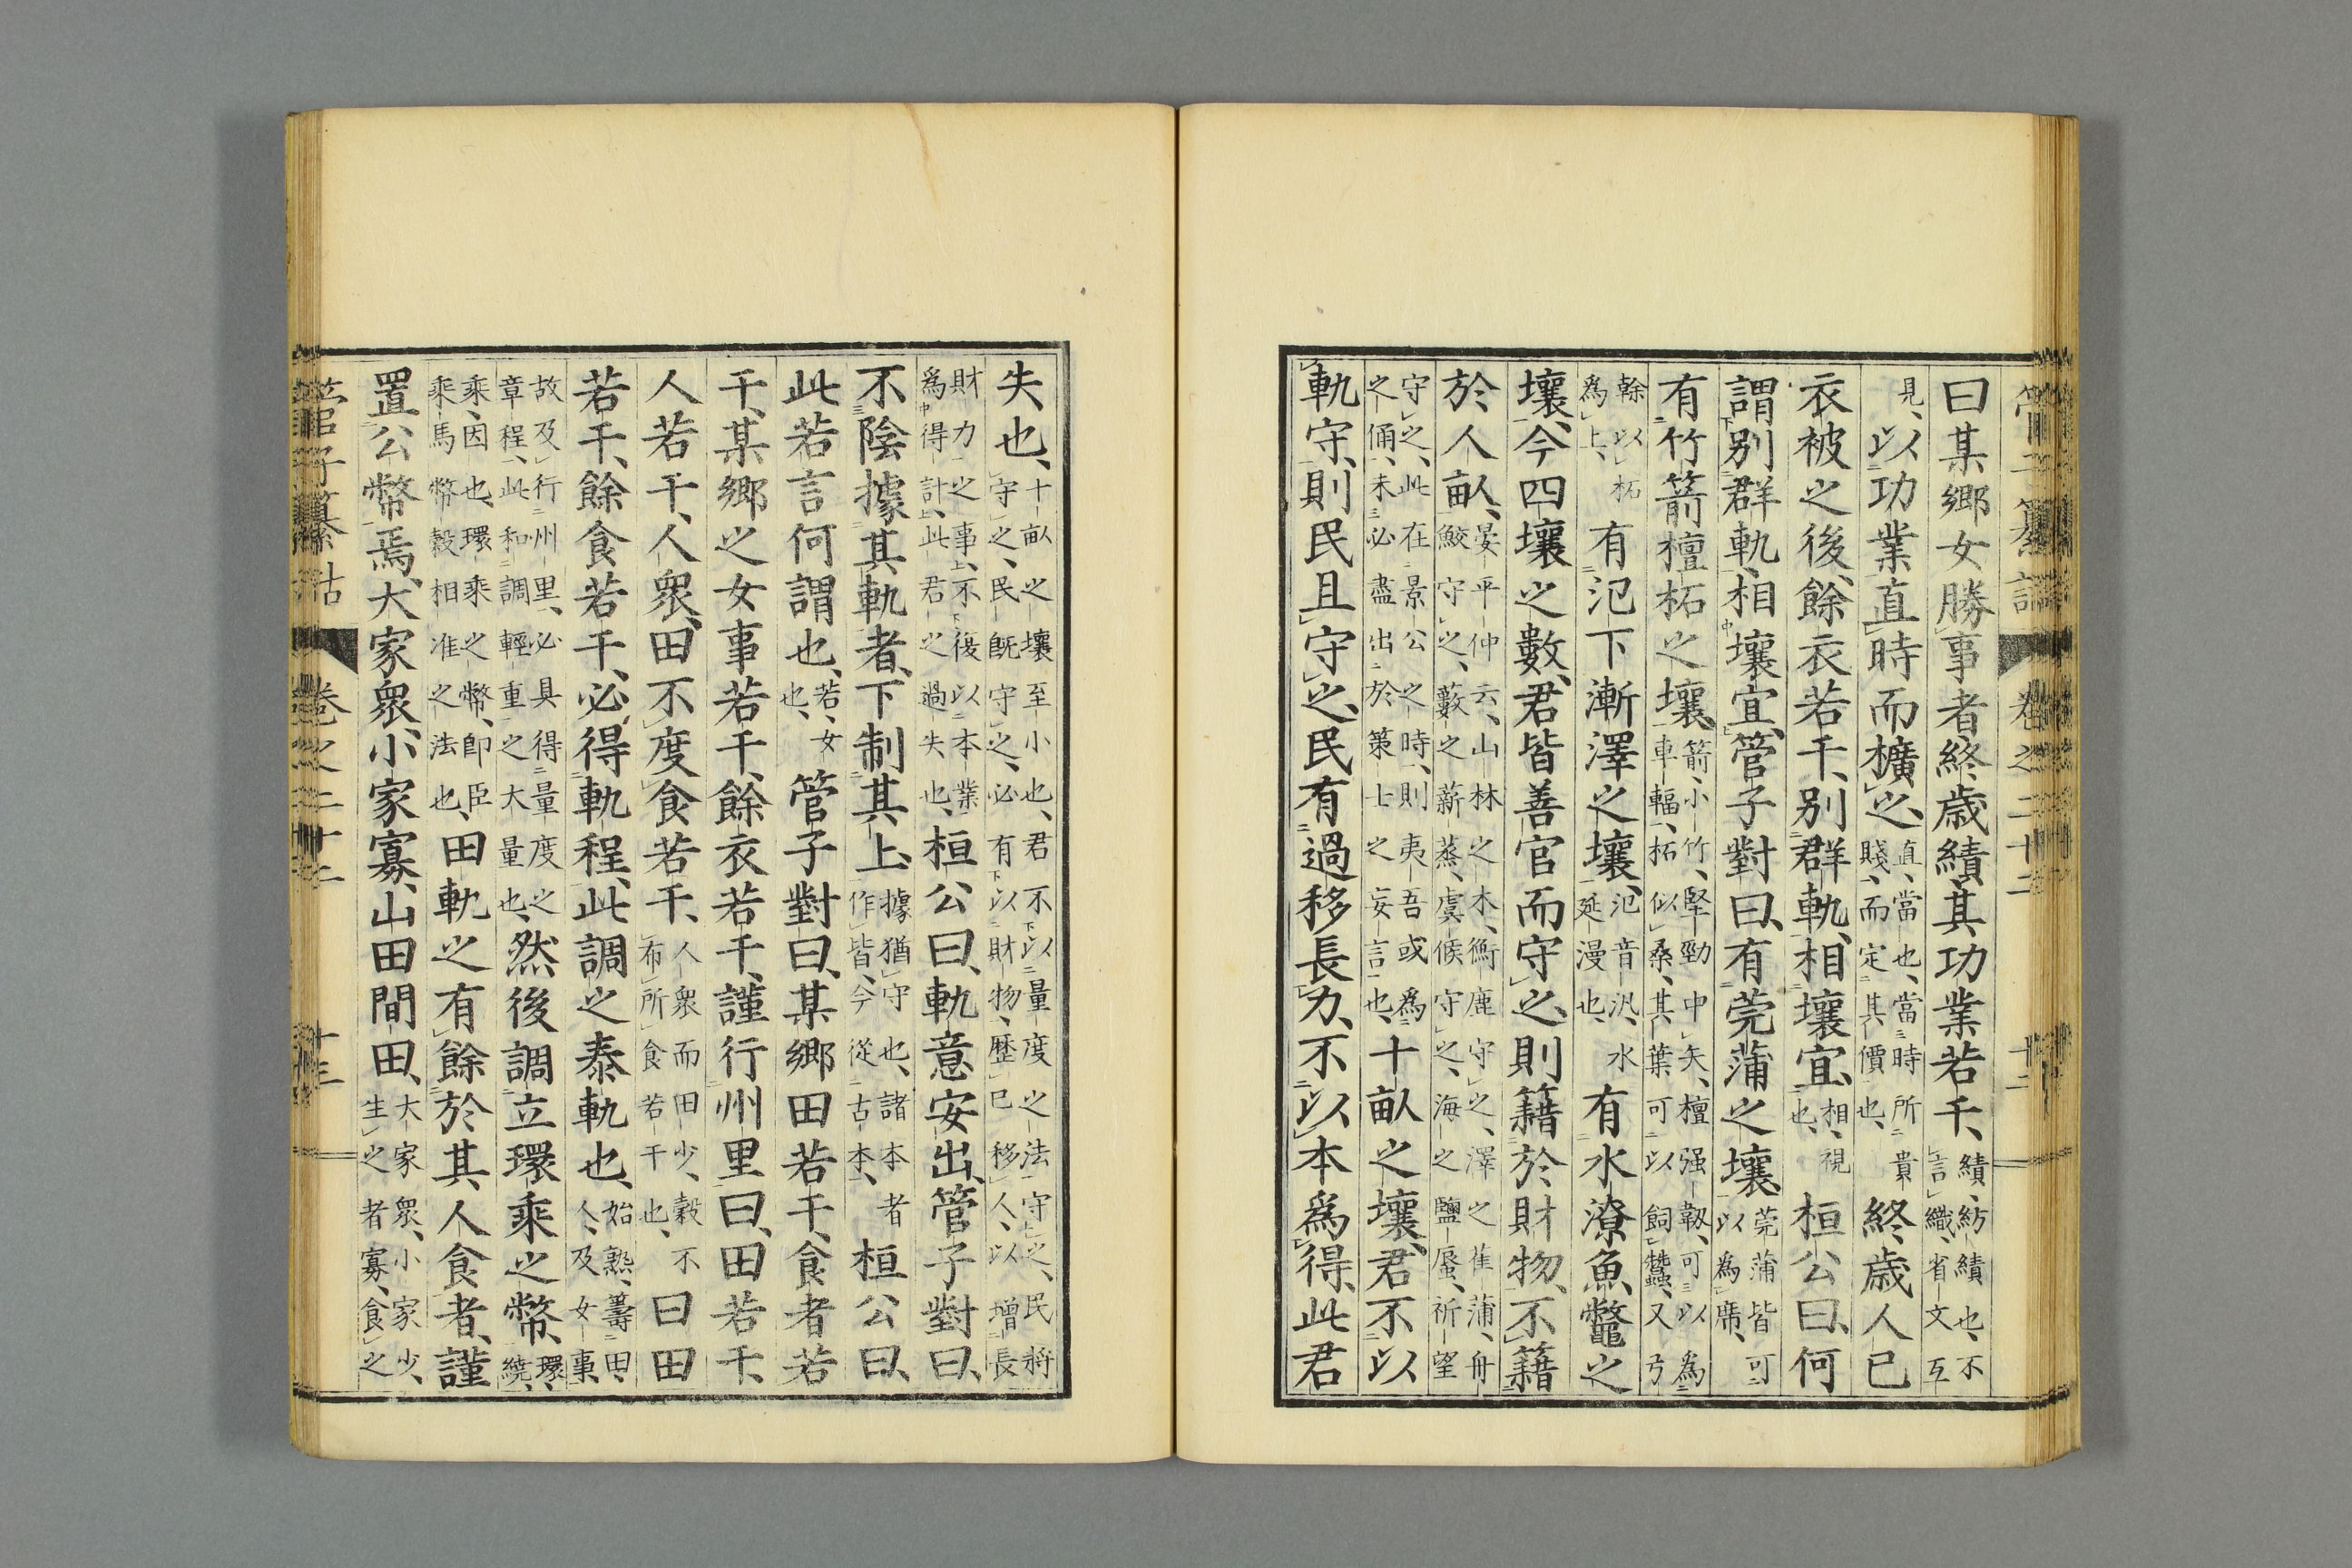 管子纂詁 卷之二十二 十二
曰某鄉女勝事者終歲績其功業若干績紡績也不言織省文互
見以功業直時而櫎之直當也當時所貴賤而定其價也終歲人已
衣被之後餘衣若干別群軌相壤宜相視也桓公曰何
謂別群軌相壤宜管子對曰有莞蒲之壤莞蒲皆可以為席
有竹箭檀柘之壤箭小竹堅勁中矢檀强韌可以為車輻柘似桑其葉可以飼蠶又弓
榦以柘為上有氾下漸澤之壤氾音汎水延漫也有水潦魚鼈之
壤今四壤之數君皆善官而守之則籍於財物不籍
於人畝晏平仲云山林之木衡鹿守之澤之萑蒲舟鮫守之藪之薪蒸虞候守之海之鹽蜃祈望
守之此在景公之時則夷吾或為之俑未必盡出於策士之妄言也十畝之壤君不以
軌守則民且守之民有過移長力不以本為得此君
失也十畝之壤至小也君不以量度之法守之民將守之民既守之必有以財物歷已移人以增長
財力之事不復以本業為得計此君之過失也桓公曰軌意安出管子對曰
不陰據其軌者下制其上據猶守也諸本者作皆今從古本桓公曰
此若言何謂也若女也管子對曰某鄉田若干食者若
干某鄉之女事若干餘衣若干謹行州里曰田若干
人若干人衆田不度食若干人衆而田少穀不布所食若干也曰田
若干餘食若干必得軌程此調之泰軌也始熟籌田人及女事
故及行州里必具得量度之章程此和調輕重之大量也然後調立環乘之幣環繞
乘因也環乘之幣即臣乘馬幣穀相准之法也田軌之有餘於其人食者謹
置公幣焉大家衆小家寡山田間田大家衆小家少生之者寡食之
管子纂詁 卷之二十二 十三